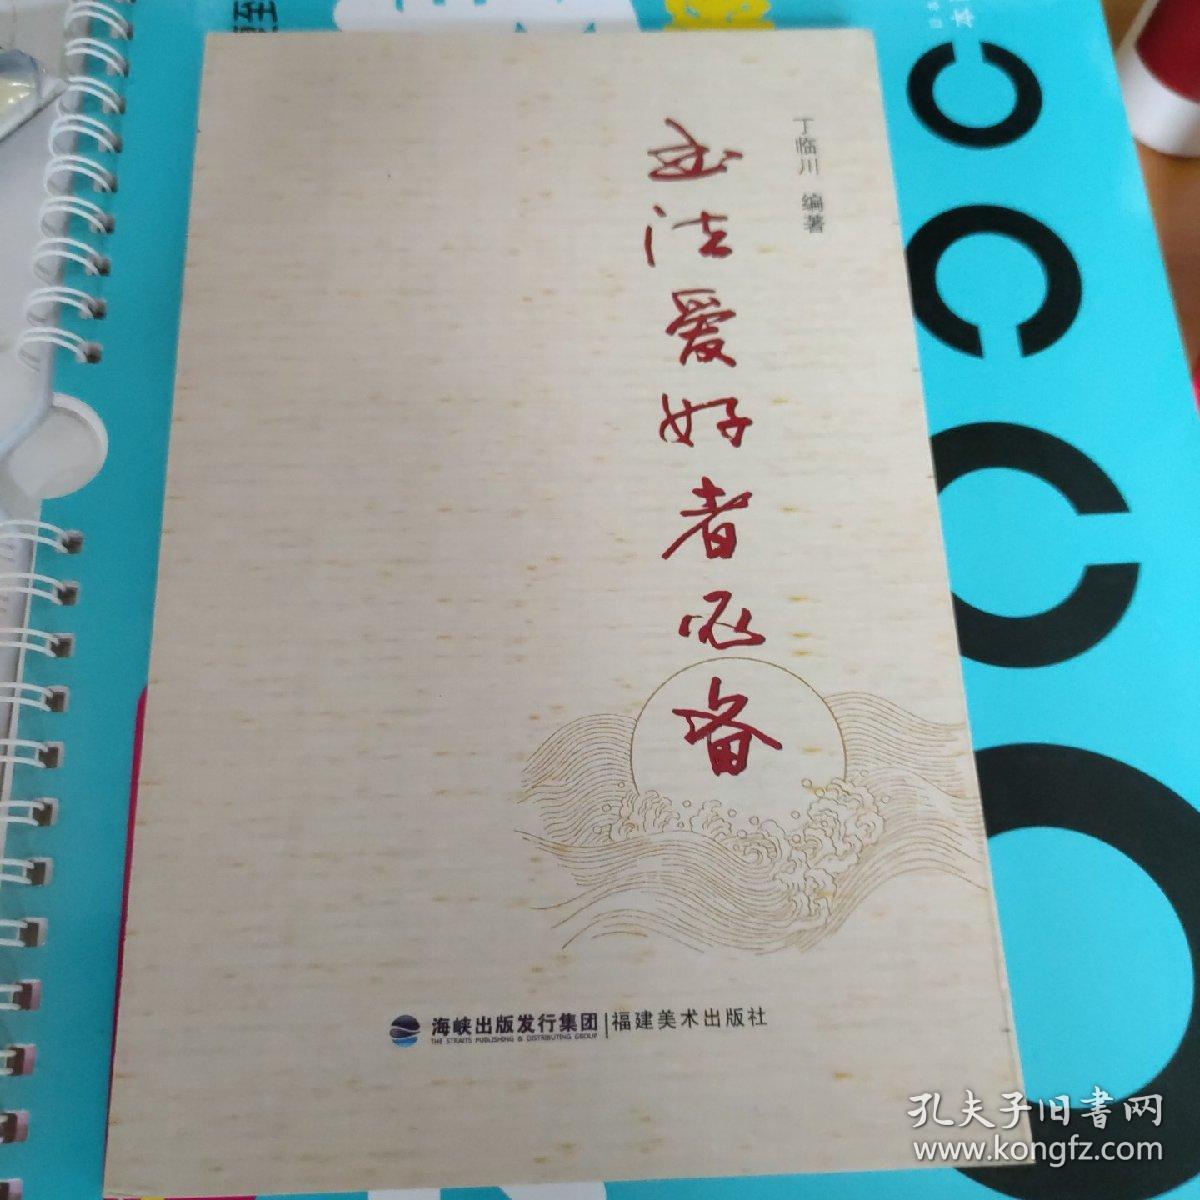 丁临川 编著
书法爱好者必备
海峡出版发行集团
THE STRAITS PUBLISHING & DISTRIBUTING GROUP
福建美术出版社
孔夫子旧書网
www.kongfz.com